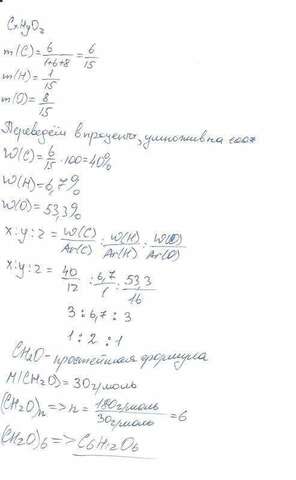 CxHyOz
m(C)= 6/1+6+8 = 6/15
m(H)= 1/15
m(O)= 8/15
Переведём в проценты, умножив на 100%
W(C)= 6/15 · 100=40%
W(H)=6,7%
W(O)=53,3%
x:y:z = W(C)/Ar(C) : W(H)/Ar(H) : W(O)/Ar(O)
x:y:z = 40/12 : 6,7/1 : 53,3/16
3 : 6,7 : 3
1 : 2 : 1
CH2O - простейшая формула
M(CH2O)=30г/моль
(CH2O)n => n = 180г/моль/30г/моль = 6
(CH2O)6 => C6H12O6